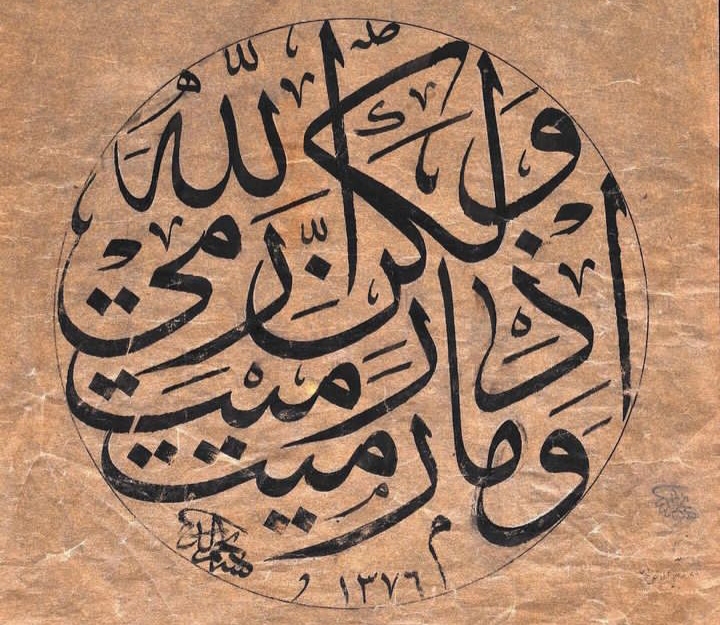 وما رميت
اذ رميت
ولكن الله رمى
١٣٧٦